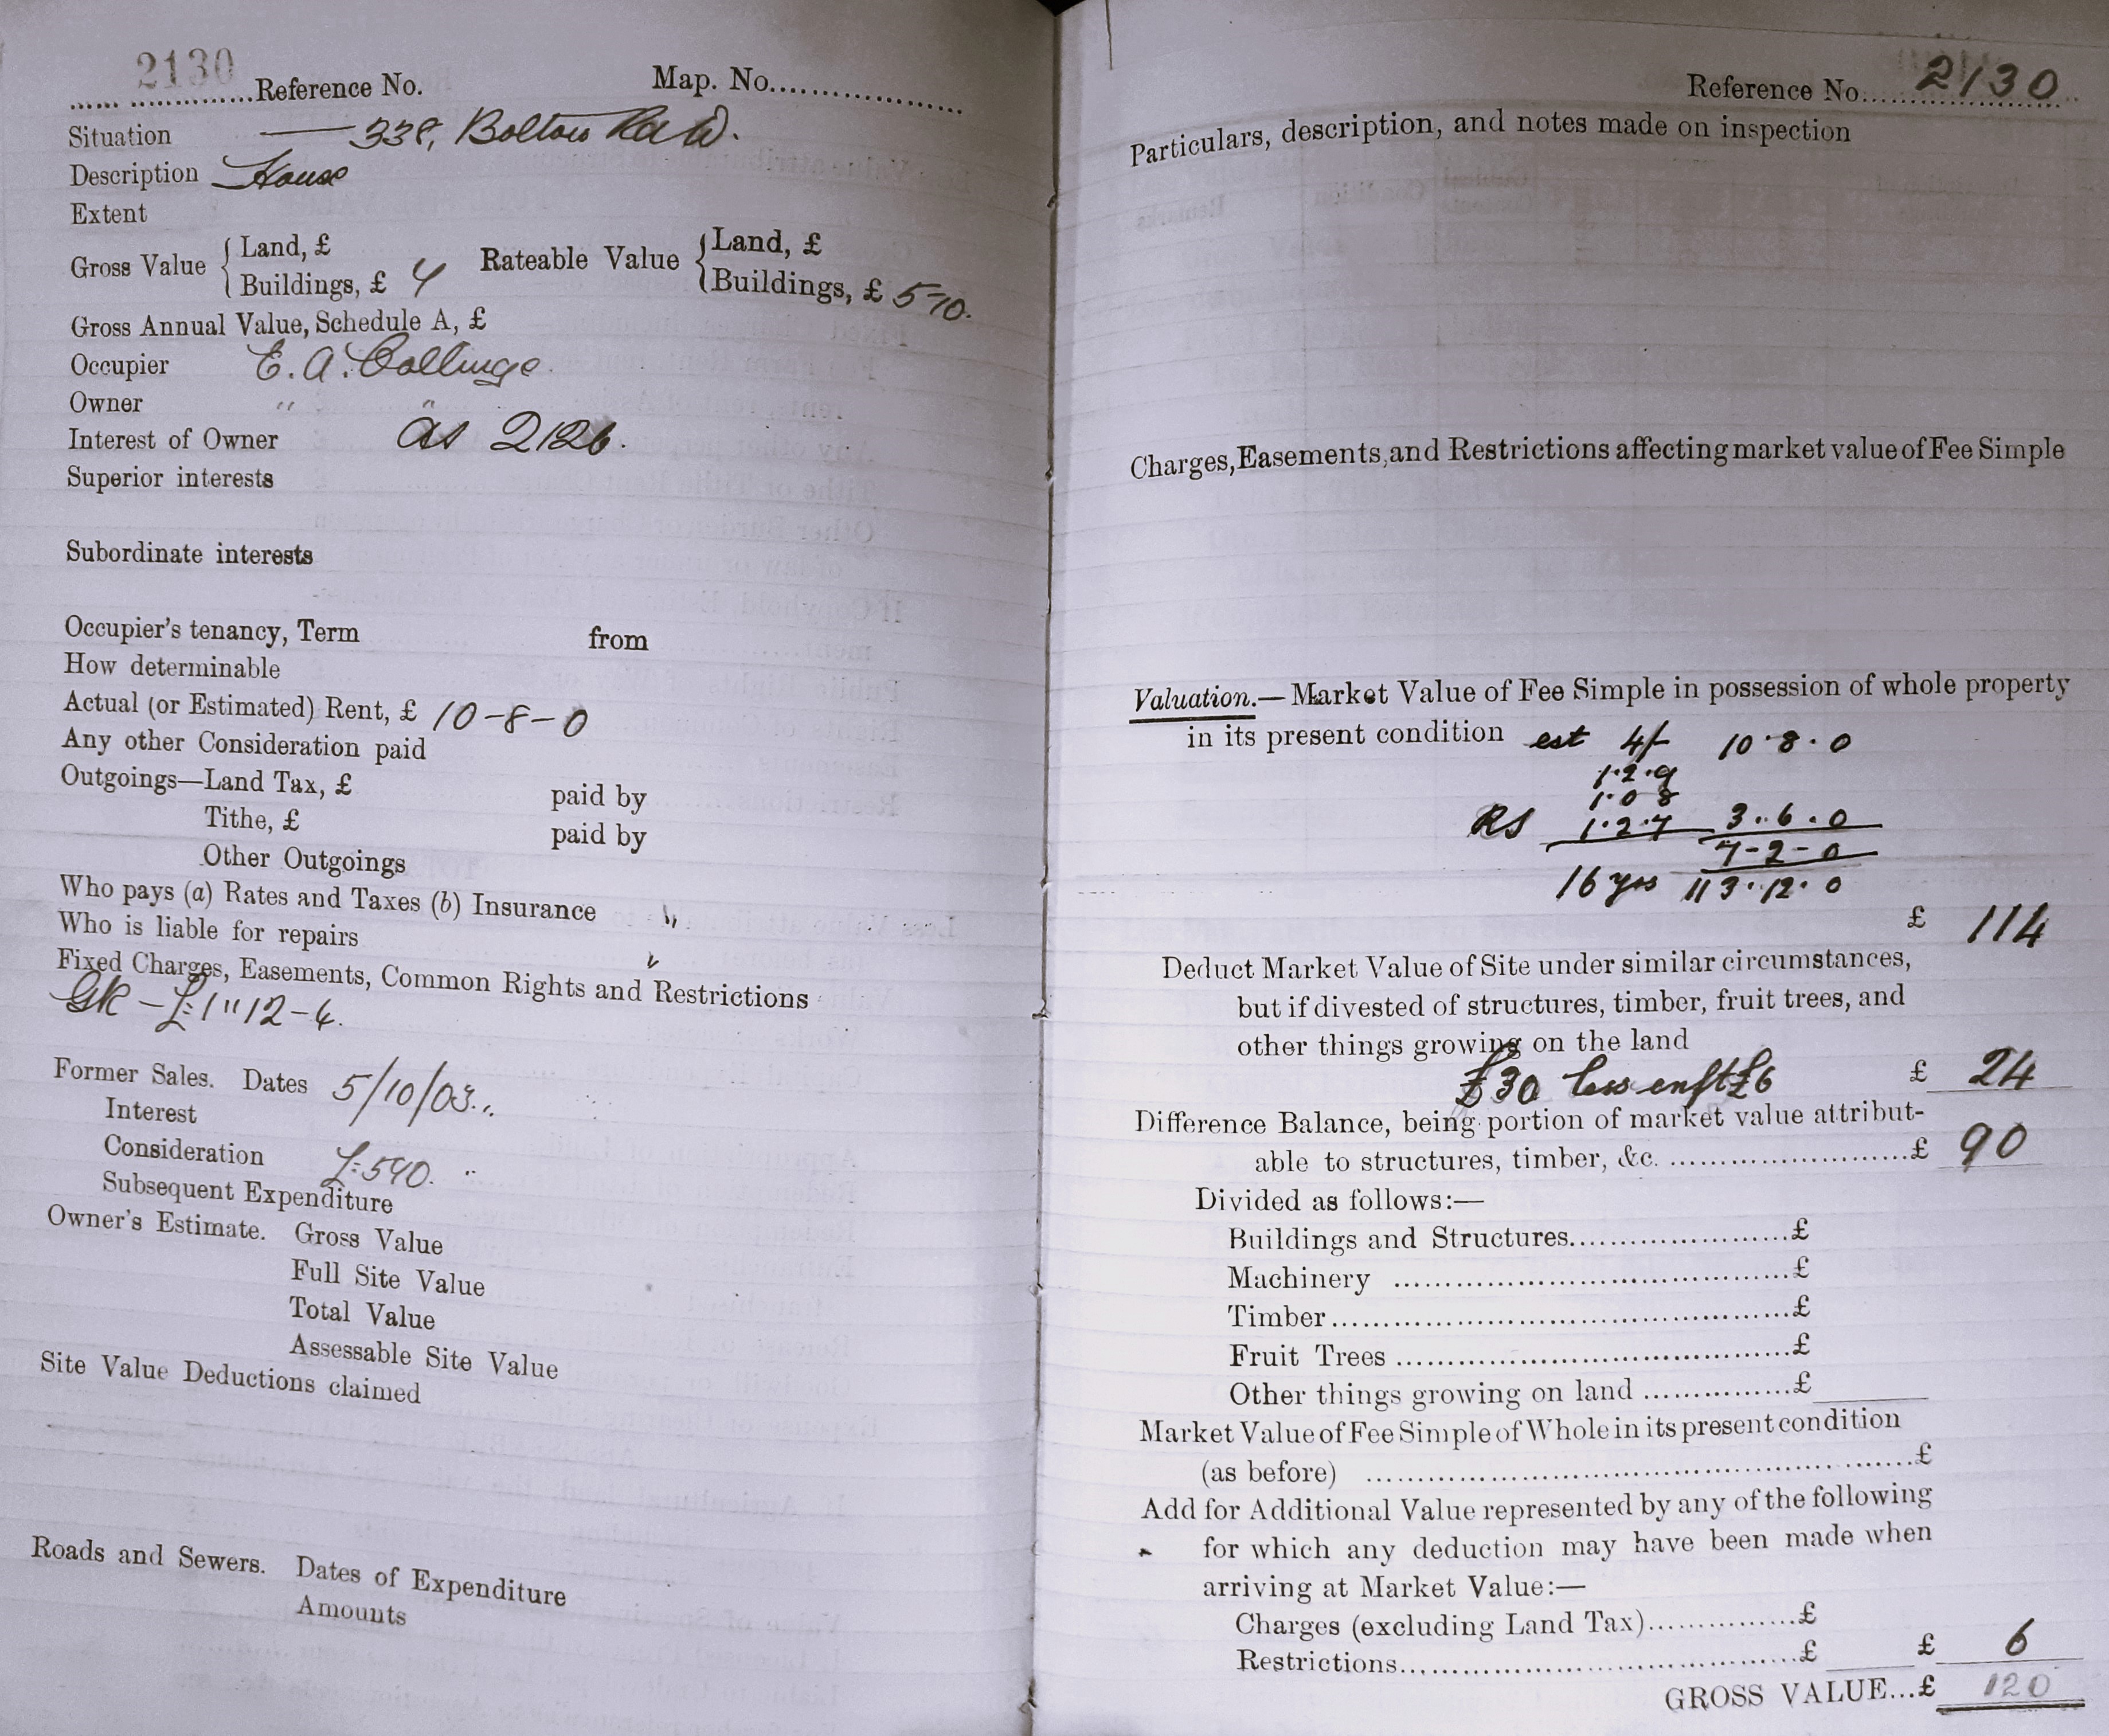 2130
Reference No. Map. No.
Situation — 338, Bolton Rd W.
Description House
Extent
Gross Value { Land, £ Rateable Value { Land, £
Buildings, £ 4 Buildings, £ 5-10.
Gross Annual Value, Schedule A, £
Occupier E. A. Collinge.
Owner " "
Interest of Owner as 2126.
Superior interests
Subordinate interests
Occupier's tenancy, Term from
How determinable
Actual (or Estimated) Rent, £ 10-8-0
Any other Consideration paid
Outgoings—Land Tax, £ paid by
Tithe, £ paid by
Other Outgoings
Who pays (a) Rates and Taxes (b) Insurance
Who is liable for repairs
Fixed Charges, Easements, Common Rights and Restrictions
GR - £1"12-4.
Former Sales. Dates 5/10/03.
Interest
Consideration £540.
Subsequent Expenditure
Owner's Estimate. Gross Value
Full Site Value
Total Value
Assessable Site Value
Site Value Deductions claimed
Roads and Sewers. Dates of Expenditure
Amounts
Reference No. 2130
Particulars, description, and notes made on inspection
Charges, Easements, and Restrictions affecting market value of Fee Simple
Valuation.—Market Value of Fee Simple in possession of whole property
in its present condition est 4/- 10.8.0
1.2.9
1.0 8
RS 1.2.7 3.6.0
7-2-0
16 yrs 113.12.0
£ 114
Deduct Market Value of Site under similar circumstances,
but if divested of structures, timber, fruit trees, and
other things growing on the land
£30 less enft £6 £ 24
Difference Balance, being portion of market value attribut-
able to structures, timber, &c. £ 90
Divided as follows:—
Buildings and Structures £
Machinery £
Timber £
Fruit Trees £
Other things growing on land £
Market Value of Fee Simple of Whole in its present condition
(as before) £
Add for Additional Value represented by any of the following
for which any deduction may have been made when
arriving at Market Value:—
Charges (excluding Land Tax) £
Restrictions £ £ 6
GROSS VALUE...£ 120